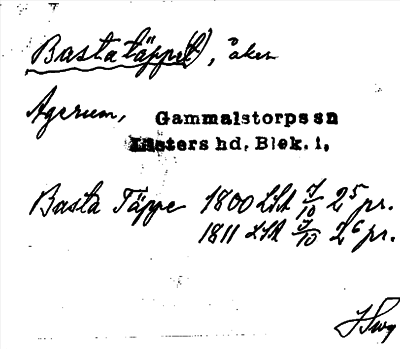 Bastatäppe(t), åker
Agerum, Gammalstorps sn
Listers hd. Blek. l.
Basta Täppe 1800 LSA 7/10 25 pr.
1811 LSA 7/10 26 pr.